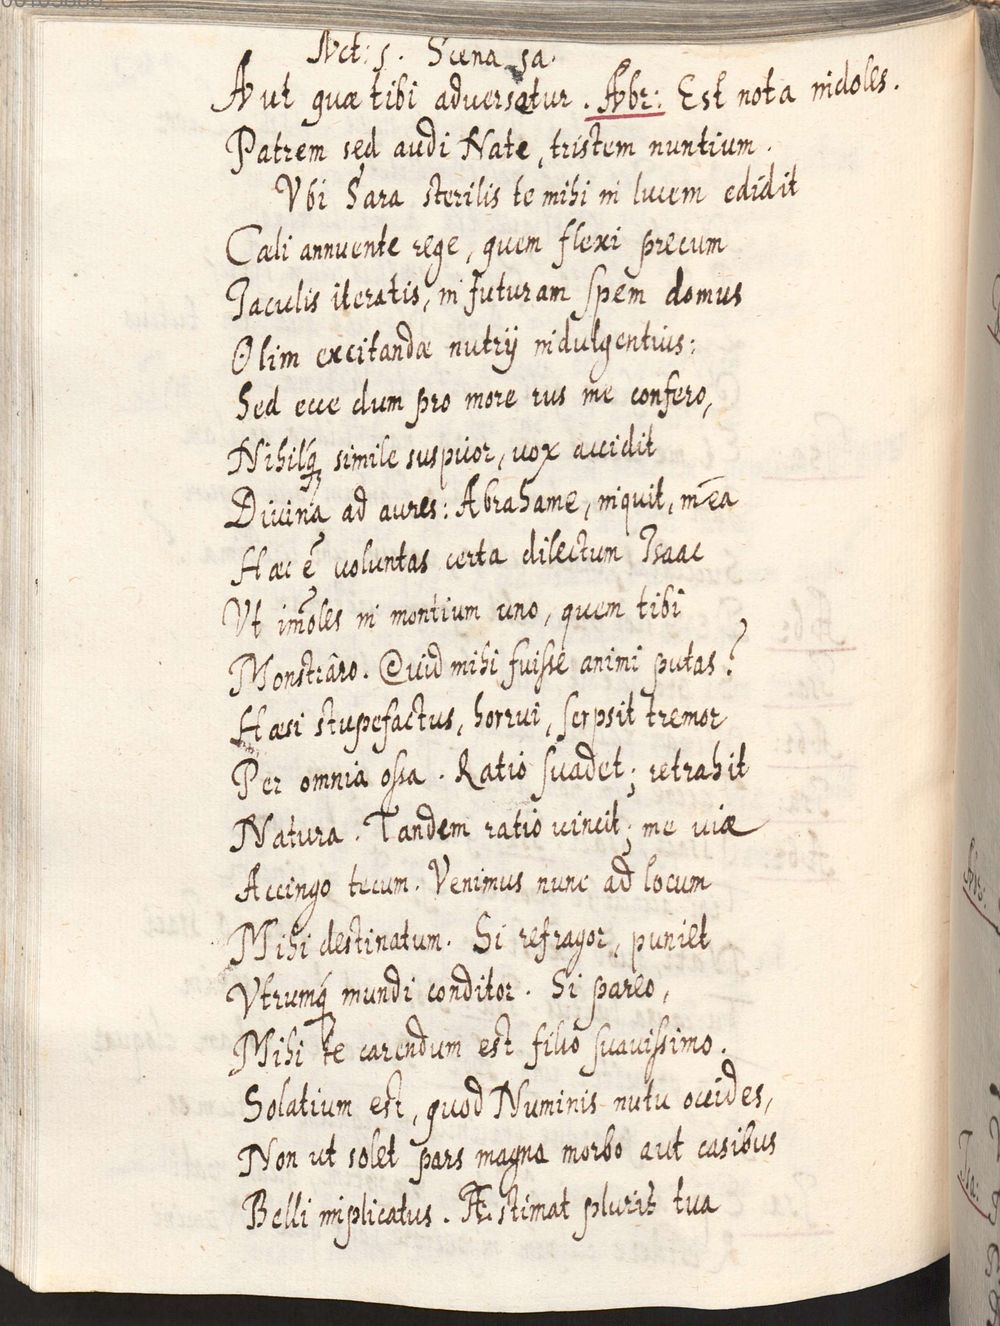 Act: 5. Scena 5a.
Aut quæ tibi adversatur. Abr: Est nota indoles.
Patrem sed audi Nate, tristem nuntium.
Vbi Sara sterilis te mihi in lucem edidit
Cæli annuente rege, quem flexi precum
Iaculis iteratis, in futuram spem domus
Olim excitandæ nutrij indulgentius:
Sed ecce dum pro more rus me confero,
Nihilq́ simile suspicor, vox accidit
Divina ad aures: Abrahame, inquit, mea
Hæc ē voluntas certa dilectum Isaac
Vt im̄oles in montium uno, quem tibi
Monstrâro. Quid mihi fuisse animi putas?
Hæsi stupefactus, horrui, serpsit tremor
Per omnia ossa. Ratio suadet; retrahit
Natura. Tandem ratio vincit; me viæ
Accingo tecum. Venimus nunc ad locum
Mihi destinatum. Si refragor, puniet
Vtrumq́ mundi conditor. Si pareo,
Mihi te carendum est filio suavissimo.
Solatium est, quod Numinis nutu occides,
Non ut solet pars magna morbo aut casibus
Belli implicatus. Æstimat pluris tua